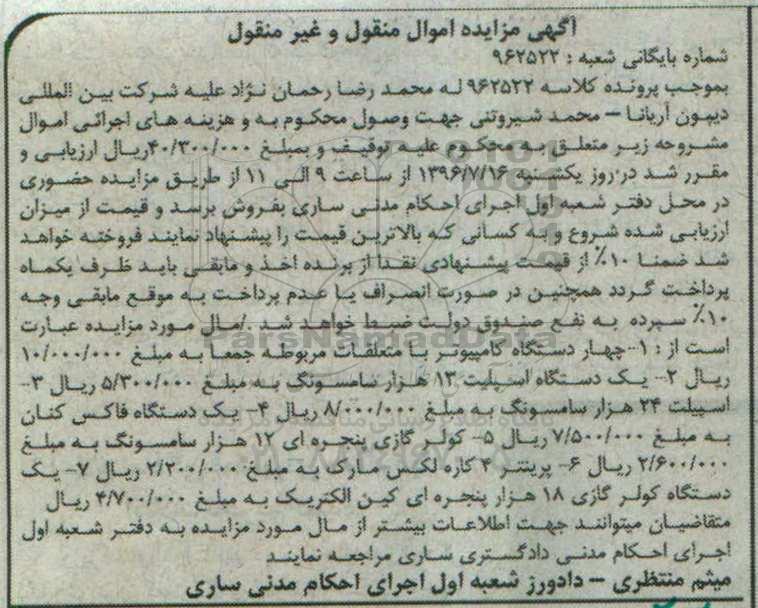 آگهی مزایده اموال منقول و غیر منقول
شماره بایگانی شعبه : ۹۶۲۵۲۲
بموجب پرونده کلاسه ۹۶۲۵۲۲ له محمد رضا رحمان نژاد علیه شرکت بین المللی
دیپون آریانا – محمد شیروتنی جهت وصول محکوم به و هزینه های اجرائی اموال
مشروحه زیر متعلق به محکوم علیه توقیف و بمبلغ ۴۰/۳۰۰/۰۰۰ریال ارزیابی و
مقرر شد در روز یکشنبه ۱۳۹۶/۷/۱۶ از ساعت ۹ الی ۱۱ از طریق مزایده حضوری
در محل دفتر شعبه اول اجرای احکام مدنی ساری بفروش برسد و قیمت از میزان
ارزیابی شده شروع و به کسانی که بالاترین قیمت را پیشنهاد نمایند فروخته خواهد
شد ضمنا ۱۰٪ از قیمت پیشنهادی نقدا از برنده اخذ و مابقی باید ظرف یکماه
پرداخت گردد همچنین در صورت انصراف یا عدم پرداخت به موقع مابقی وجه
۱۰٪ سپرده به نفع صندوق دولت ضبط خواهد شد ./مال مورد مزایده عبارت
است از : ۱-چهار دستگاه کامپیوتر با متعلقات مربوطه جمعا به مبلغ ۱۰/۰۰۰/۰۰۰
ریال ۲- یک دستگاه اسپلیت ۱۳ هزار سامسونگ به مبلغ ۵/۳۰۰/۰۰۰ ریال ۳-
اسپیلت ۲۴ هزار سامسونگ به مبلغ ۸/۰۰۰/۰۰۰ ریال ۴- یک دستگاه فاکس کنان
به مبلغ ۷/۵۰۰/۰۰۰ ریال ۵- کولر گازی پنجره ای ۱۲ هزار سامسونگ به مبلغ
۲/۶۰۰/۰۰۰ ریال ۶- پرینتر ۴ کاره لکس مارک به مبلغ ۲/۲۰۰/۰۰۰ ریال ۷- یک
دستگاه کولر گازی ۱۸ هزار پنجره ای کین الکتریک به مبلغ ۴/۷۰۰/۰۰۰ ریال
متقاضیان میتوانند جهت اطلاعات بیشتر از مال مورد مزایده به دفتر شعبه اول
اجرای احکام مدنی دادگستری ساری مراجعه نمایند
میثم منتظری – دادورز شعبه اول اجرای احکام مدنی ساری
ParsNamadData